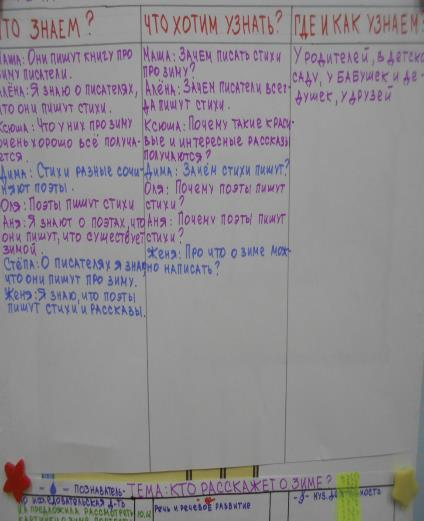 ТО ЗНАЕМ?
АША: ОНИ ПИШУТ КНИГУ ПРО
ЗИМУ ПИСАТЕЛИ.
ЛЁНА: Я ЗНАЮ О ПИСАТЕЛЯХ,
ЧТО ОНИ ПИШУТ СТИХИ.
КСЮША: ЧТО У НИХ ПРО ЗИМУ
ОЧЕНЬ ХОРОШО ВСЁ ПОЛУЧА-
ЕТСЯ.
ДИМА: СТИХИ РАЗНЫЕ СОЧИ-
НЯЮТ ПОЭТЫ.
ОЛЯ: ПОЭТЫ ПИШУТ СТИХИ
АНЯ: Я ЗНАЮТ О ПОЭТАХ, ЧТО
ОНИ ПИШУТ, ЧТО СУЩЕСТВУЕТ
ЗИМОЙ.
СТЁПА: О ПИСАТЕЛЯХ Я ЗНАЮ
ЧТО ОНИ ПИШУТ ПРО ЗИМУ.
ЖЕНЯ: Я ЗНАЮ, ЧТО ПОЭТЫ
ПИШУТ СТИХИ И РАССКАЗЫ.
ЧТО ХОТИМ УЗНАТЬ?
МАША: ЗАЧЕМ ПИСАТЬ СТИХИ
ПРО ЗИМУ?
АЛЁНА: ЗАЧЕМ ПИСАТЕЛИ ВСЕГ-
ДА ПИШУТ СТИХИ.
КСЮША: ПОЧЕМУ ТАКИЕ КРАСИ-
ВЫЕ И ИНТЕРЕСНЫЕ РАССКАЗЫ
ПОЛУЧАЮТСЯ?
ДИМА: ЗАЧЕМ СТИХИ ПИШУТ?
ОЛЯ: ПОЧЕМУ ПОЭТЫ ПИШУТ
СТИХИ?
АНЯ: ПОЧЕМУ ПОЭТЫ ПИШУТ
СТИХИ?
ЖЕНЯ: ПРО ЧТО О ЗИМЕ МОЖ-
НО НАПИСАТЬ?
ГДЕ И КАК УЗНАЕМ?
У РОДИТЕЛЕЙ, В ДЕТСКО
САДУ, У БАБУШЕК И ДЕ-
ДУШЕК, У ДРУЗЕЙ
ТЕМА: КТО РАССКАЖЕТ О ЗИМЕ?
- ПОЗНАВАТЕЛЬ-
ИССЛЕДОВАТЕЛЬСКАЯ Д-ТЬ
ПРЕДЛОЖИЛА РАССМОТРЕТЬ
РЕЧЬ И РЕЧЕВОЕ РАЗВИТИЕ